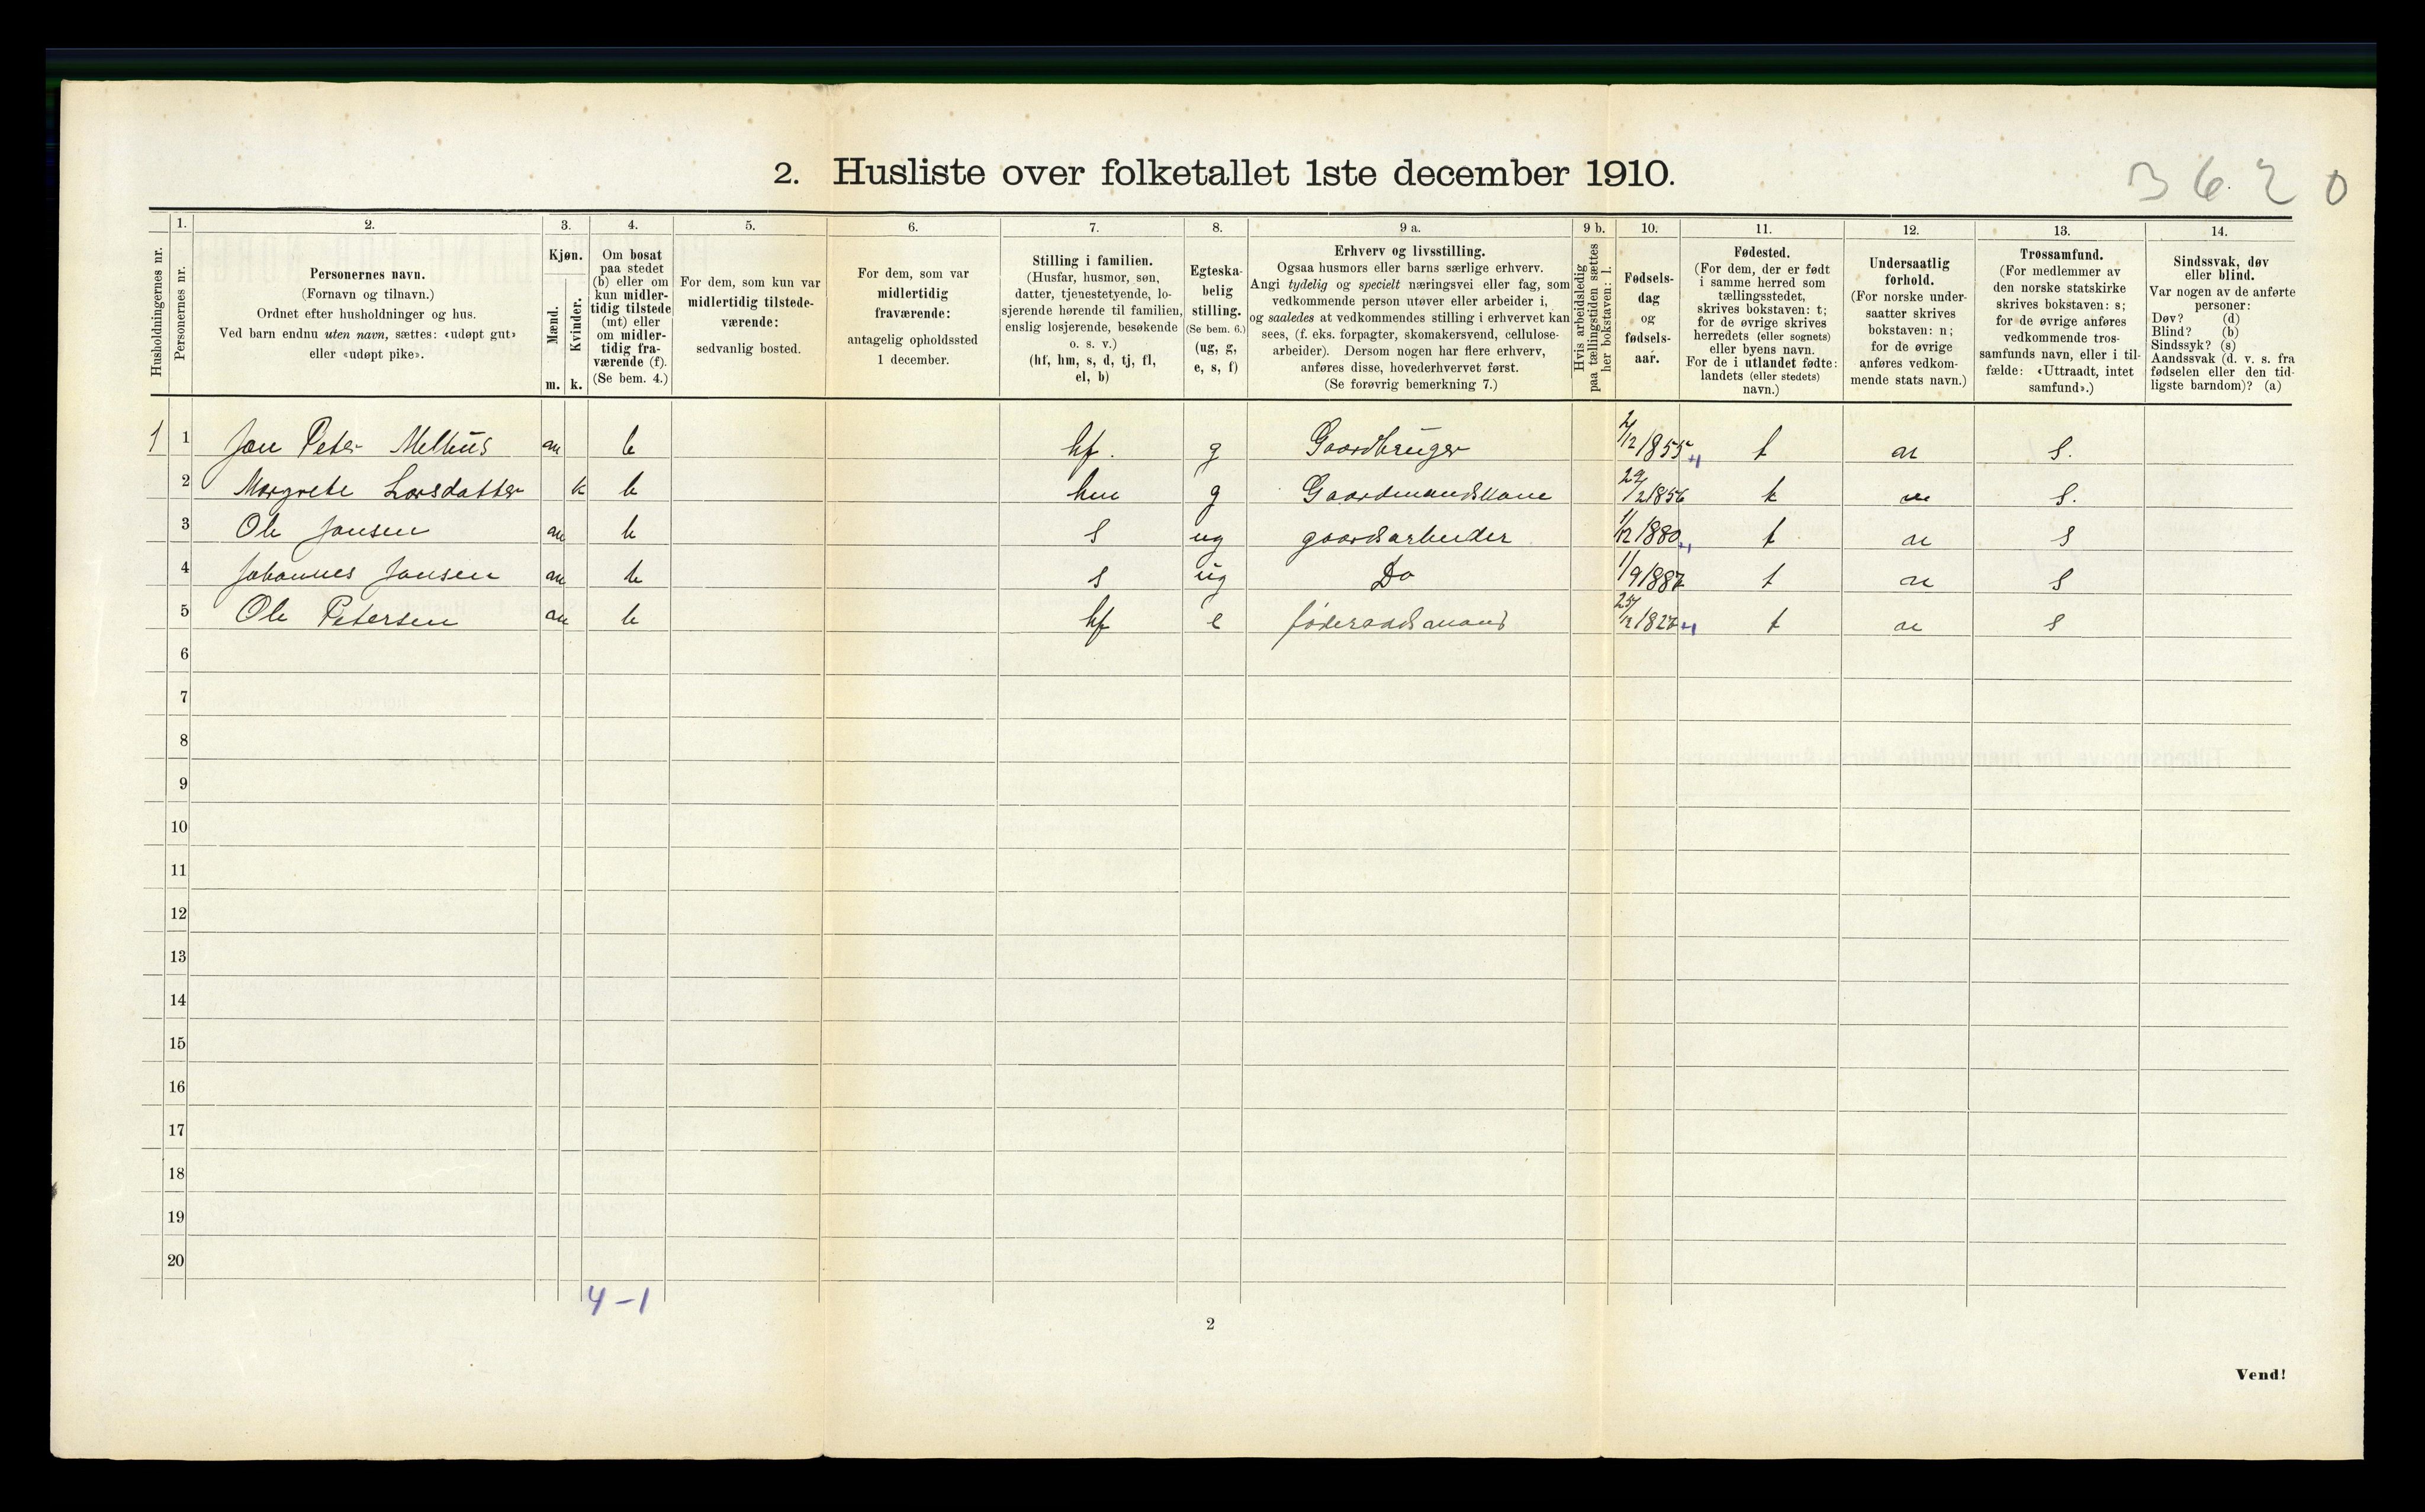 2. Husliste over folketallet 1ste december 1910.
3620
Husholdningernes nr.
1.
Personernes nr.
2.
Personernes navn.
(Fornavn og tilnavn.)
Ordnet efter husholdninger og hus.
Ved barn endnu uten navn, sættes: «udøpt gut»
eller «udøpt pike».
3.
Kjøn.
Mænd.
Kvinder.
m. k.
4.
Om bosat
paa stedet
(b) eller om
kun midler-
tidig tilstede
(mt) eller
om midler-
tidig fra-
værende (f).
(Se bem. 4.)
5.
For dem, som kun var
midlertidig tilstede-
værende:
sedvanlig bosted.
6.
For dem, som var
midlertidig
fraværende:
antagelig opholdssted
1 december.
7.
Stilling i familien.
(Husfar, husmor, søn,
datter, tjenestetyende, lo-
sjerende hørende til familien,
enslig losjerende, besøkende
o. s. v.)
(hf, hm, s, d, tj, fl,
el, b)
8.
Egteska-
belig
stilling.
(Se bem. 6.)
(ug, g,
e, s, f)
9 a.
Erhverv og livsstilling.
Ogsaa husmors eller barns særlige erhverv.
Angi tydelig og specielt næringsvei eller fag, som
vedkommende person utøver eller arbeider i,
og saaledes at vedkommendes stilling i erhvervet kan
sees, (f. eks. forpagter, skomakersvend, cellulose-
arbeider). Dersom nogen har flere erhverv,
anføres disse, hovederhvervet først.
(Se forøvrig bemerkning 7.)
9 b.
Hvis arbeidsledig
paa tællingstiden sættes
her bokstaven: l.
10.
Fødsels-
dag
og
fødsels-
aar.
11.
Fødested.
(For dem, der er født
i samme herred som
tællingsstedet,
skrives bokstaven: t;
for de øvrige skrives
herredets (eller sognets)
eller byens navn.
For de i utlandet fødte:
landets (eller stedets)
navn.)
12.
Undersaatlig
forhold.
(For norske under-
saatter skrives
bokstaven: n;
for de øvrige
anføres vedkom-
mende stats navn.)
13.
Trossamfund.
(For medlemmer av
den norske statskirke
skrives bokstaven: s;
for de øvrige anføres
vedkommende tros-
samfunds navn, eller i til-
fælde: «Uttraadt, intet
samfund».)
14.
Sindssvak, døv
eller blind.
Var nogen av de anførte
personer:
Døv? (d)
Blind? (b)
Sindssyk? (s)
Aandssvak (d. v. s. fra
fødselen eller den tid-
ligste barndom)? (a)
1 1 Jon Peter Melhus m b hf. g Gaardbruger 2/12 1855 t n s.
2 Margrete Larsdatter k b hm g Gaardmandskone 1856 t n s.
3 Ole Jonsen m b s ug gaardsarbeider 1/12 1880 t n s
4 Johannes Jonsen m b s ug Do 1/9 1887 t n s
5 Ole Petersen m b hf e føderaadsmand t n s
6
7
8
9
10
11
12
13
14
15
16
17
18
19
20
4-1
2
Vend!